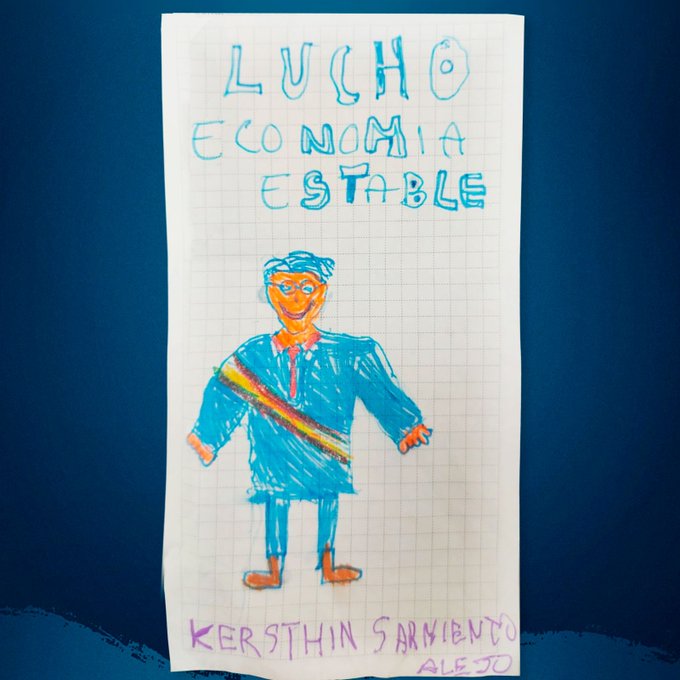 LUCHO
ECONOMIA
ESTABLE
KERSTHIN SARMIENTO
ALEJO